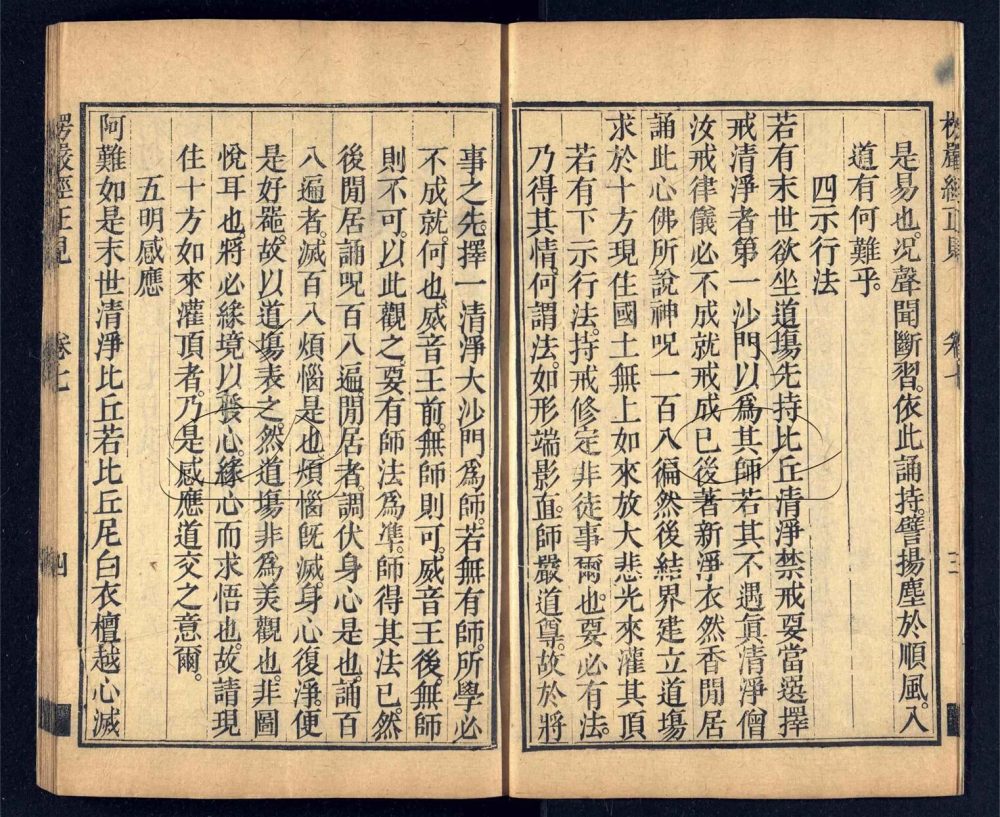 是易也。况聲聞斷習。依此誦持。譬揚塵於順風。入
道有何難乎。
四示行法
若有末世欲坐道塲先持比丘清淨禁戒要當選擇
戒清淨者第一沙門以爲其師若其不遇眞清淨僧
汝戒律儀必不成就戒成已後著新淨衣然香閒居
誦此心佛所說神呪一百八徧然後結界建立道塲
求於十方現住國土無上如來放大悲光來灌其頂
若有下示行法。持戒修定非徒事爾也。要必有法。
乃得其情。何謂法。如形端影直。師嚴道尊。故於將
事之先。擇一清淨大沙門爲師。若無有師。所學必
不成就。何也。威音王前。無師則可。威音王後。無師
則不可。以此觀之。要有師法爲準。師得其法已。然
後閒居誦呪百八遍。閒居者調伏身心是也。誦百
八遍者。滅百八煩惱是也。煩惱旣滅。身心復淨。便
是好器。故以道塲表之。然道塲非爲美觀也。非圖
悅耳也。將必緣境以發心。緣心而求悟也。故請現
住十方如來灌頂者。乃是感應道交之意爾。
五明感應
阿難如是末世清淨比丘若比丘尼白衣檀越心滅
楞嚴經正見 卷七 三
楞嚴經正見 卷七 四